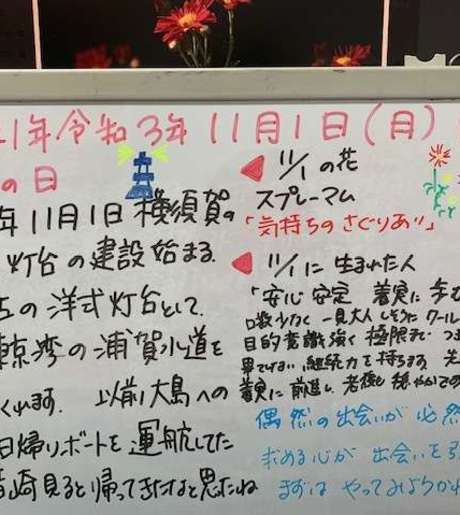 1年令和3年11月1日(月)
の日
年11月1日横須賀の
灯台の建設始まる.
の洋式灯台として.
東京湾の浦賀水道を
くれます. 以前大島への
日帰りボートを運航してた
崎見ると帰ってきたなと思たね
◀ 11/1 の花
スプレーマム
「気持ちのさぐりあい」
◀ 11/1に生まれた人
「安心安定 着実に歩む
口数少なく 一見大人しそうだ クール
目的意識強く 極限まで つ
継続力を持ちます. 先
着実に前進し、老後も 穏やかでの
偶然の出会いが必然
求める心が 出会いを引
まずは やってみようかな